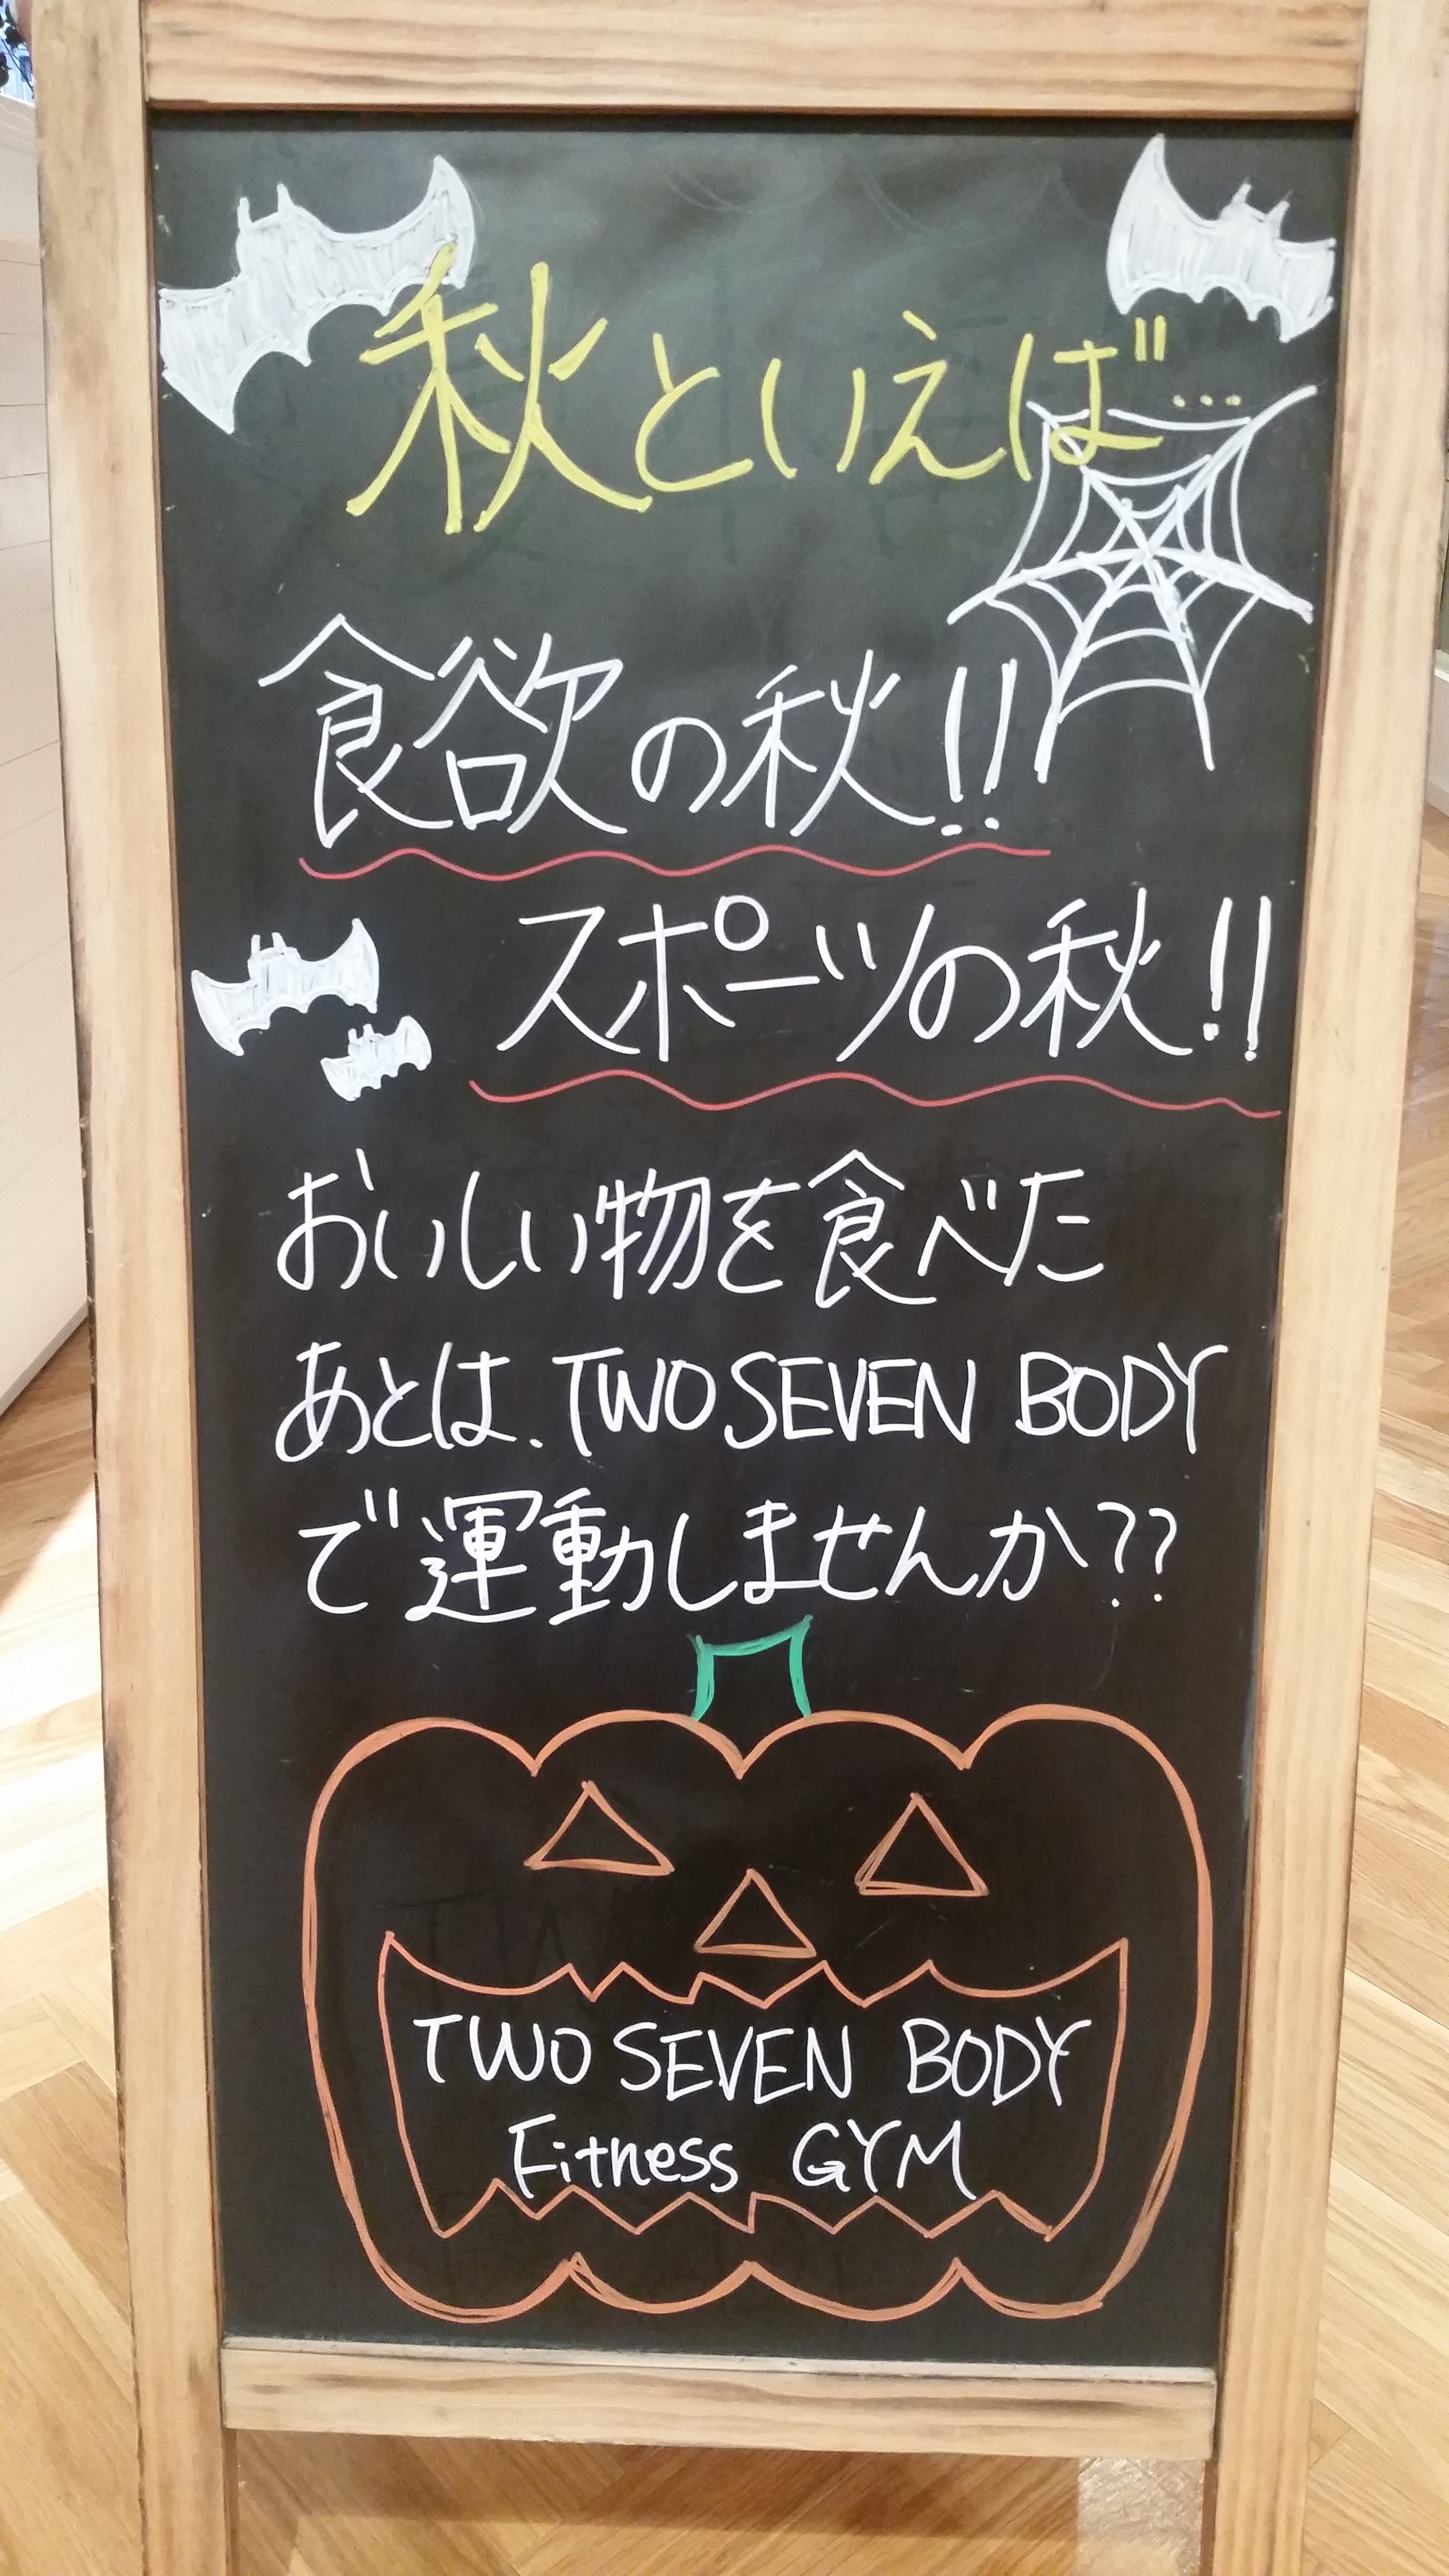 秋といえば…
食欲の秋!!
スポーツの秋!!
おいしい物を食べた
あとは、TWO SEVEN BODY
で運動しませんか??
TWO SEVEN BODY
Fitness GYM